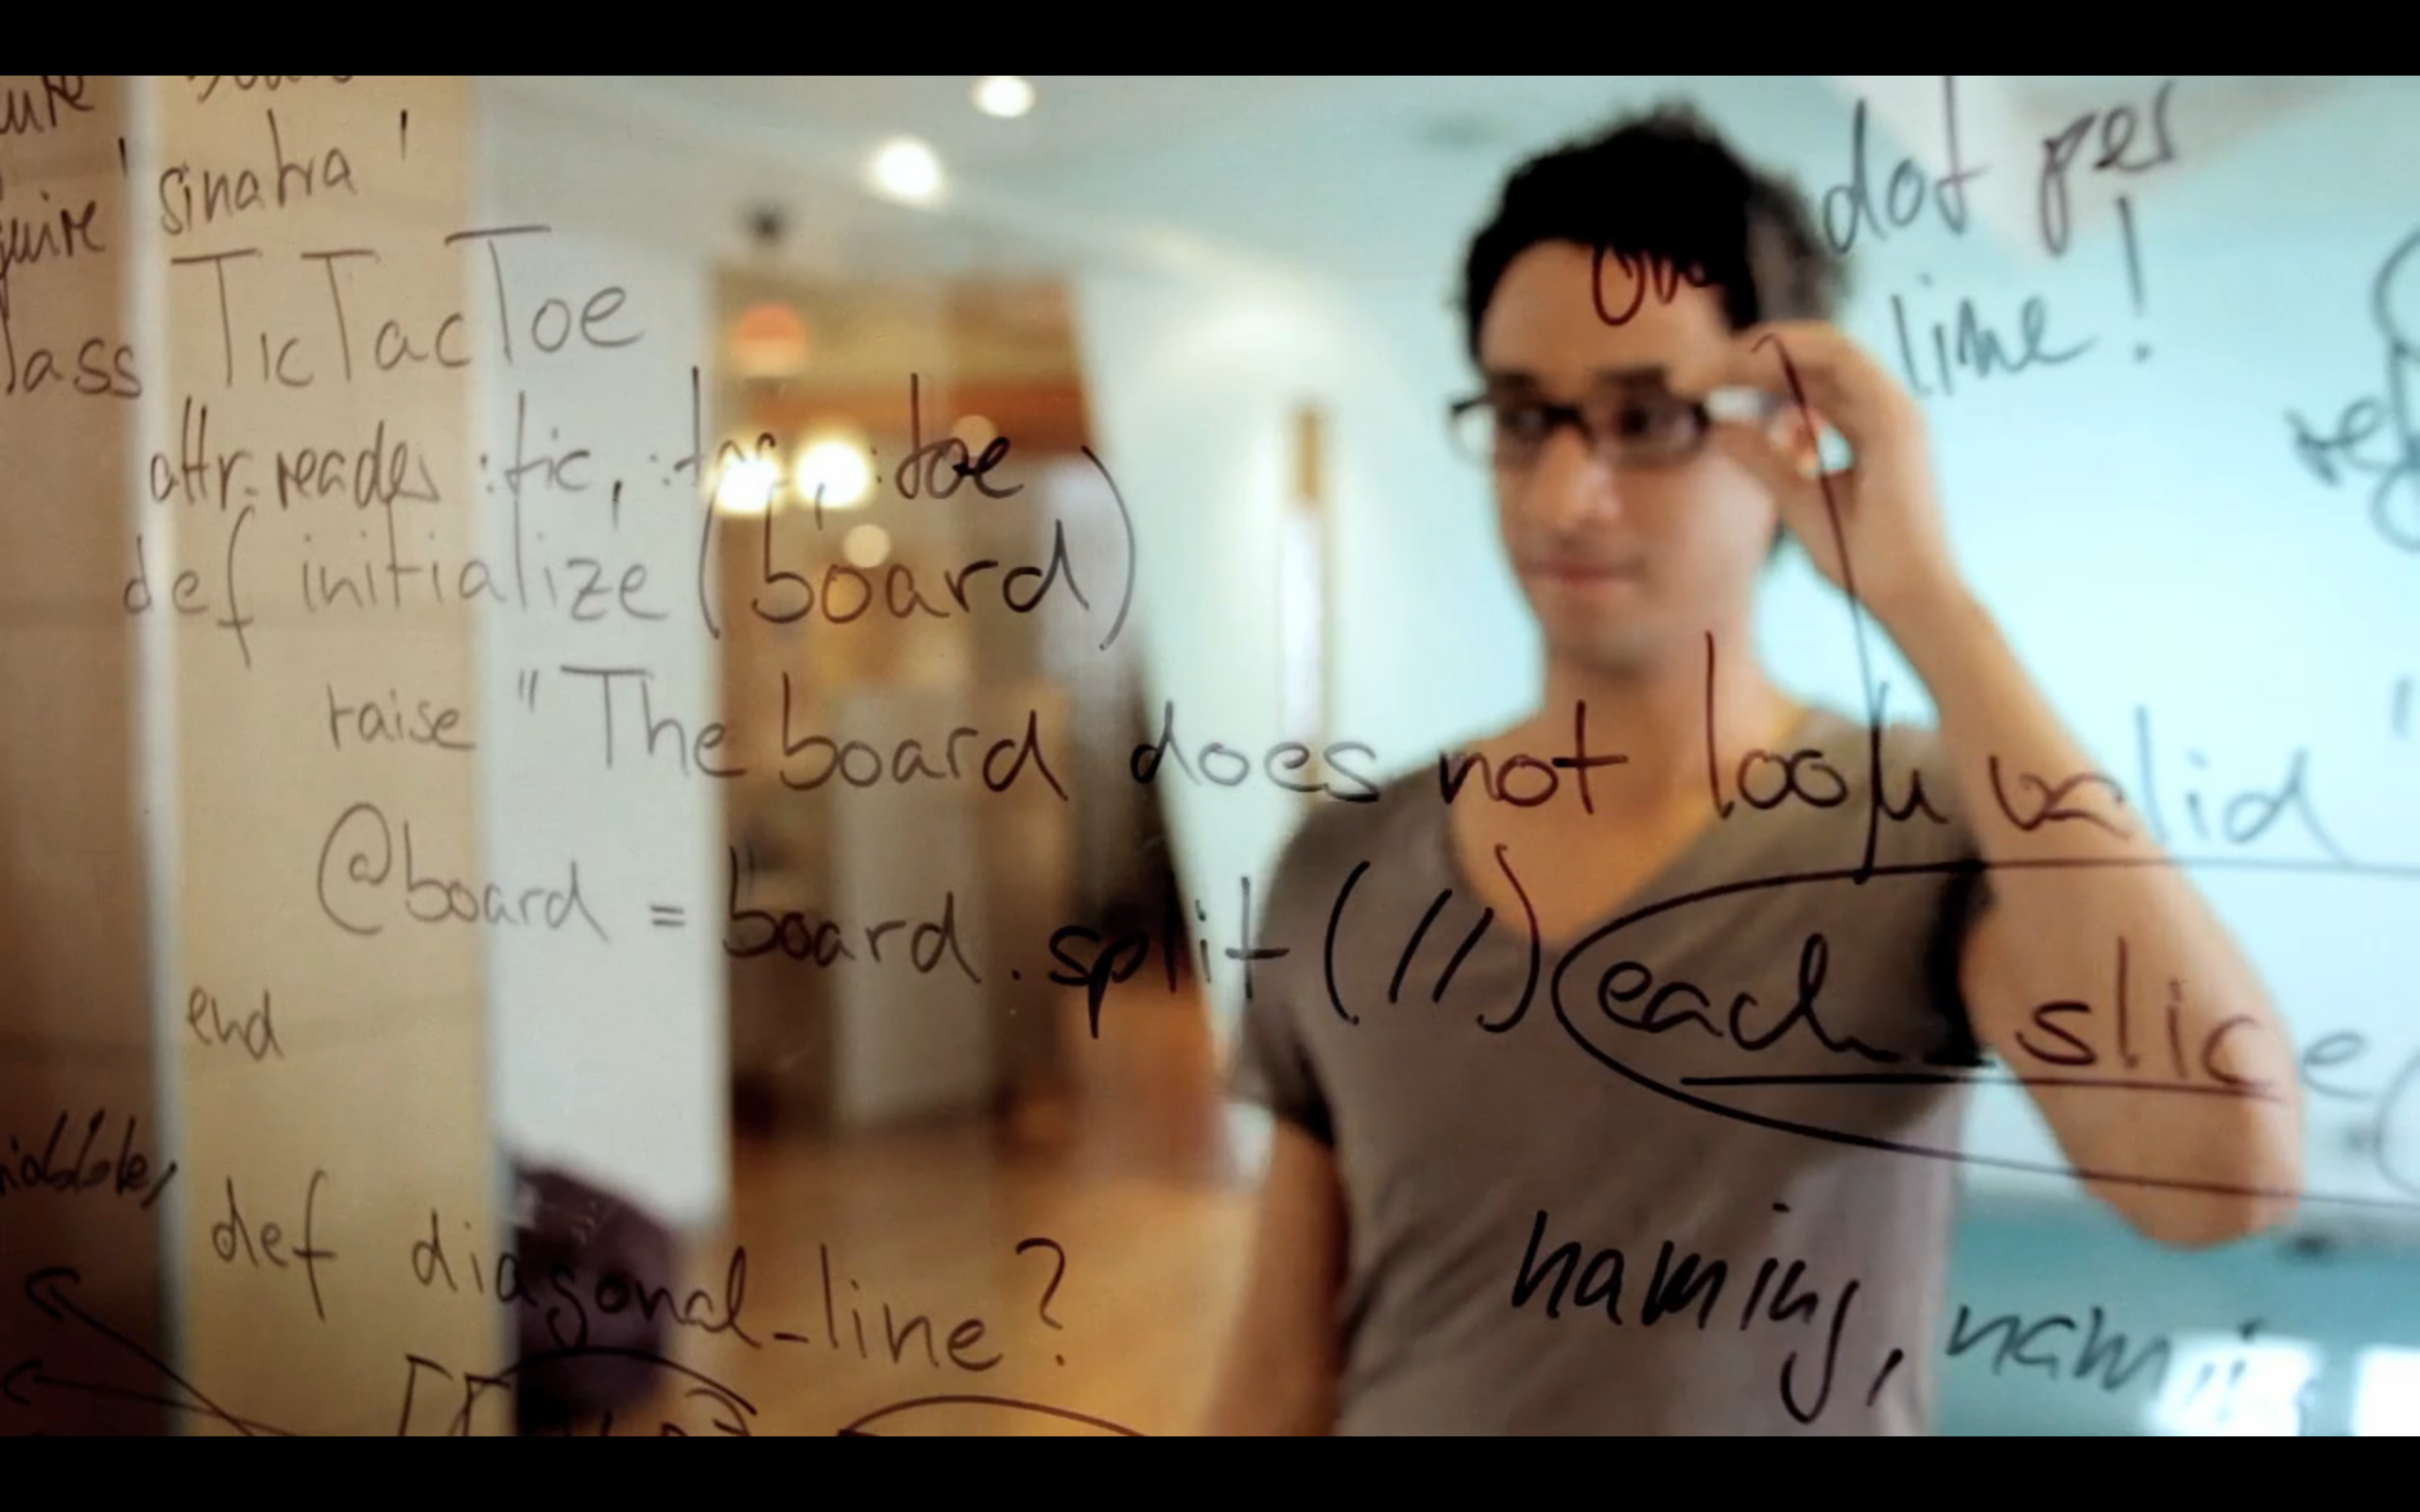 sinatra'
TicTacToe
attr_reader :tic, :tac, :toe
def initialize (board)
raise "The board does not look valid"
@board = board.split(//) each_slice(
end
def diagonal_line?
One dot per
line!
naming, nami